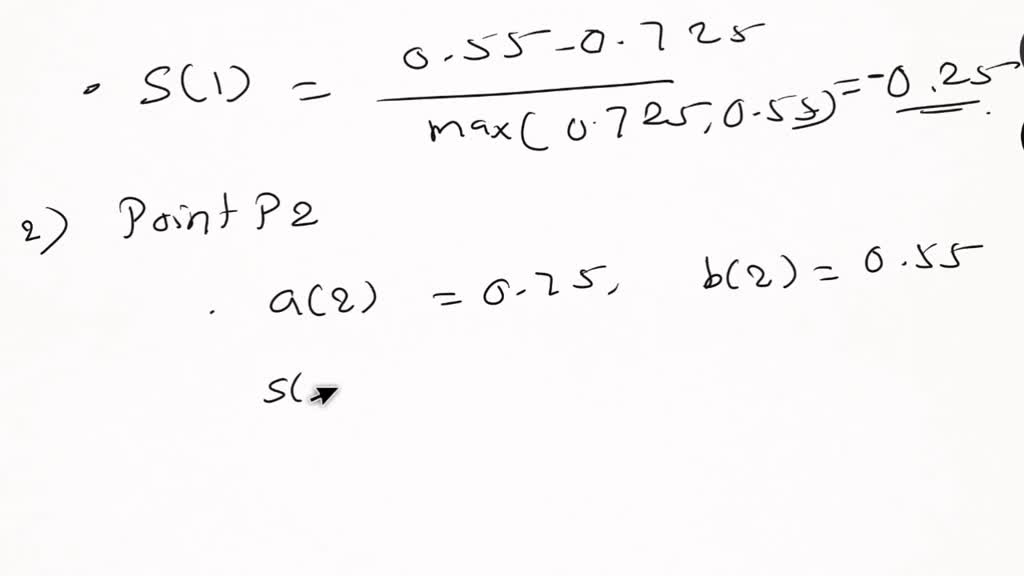 • S(1) = 0.55-0.725 / max(0.725, 0.55) = -0.25
2) Point P2
. a(2) = 0.75, b(2) = 0.55
S(